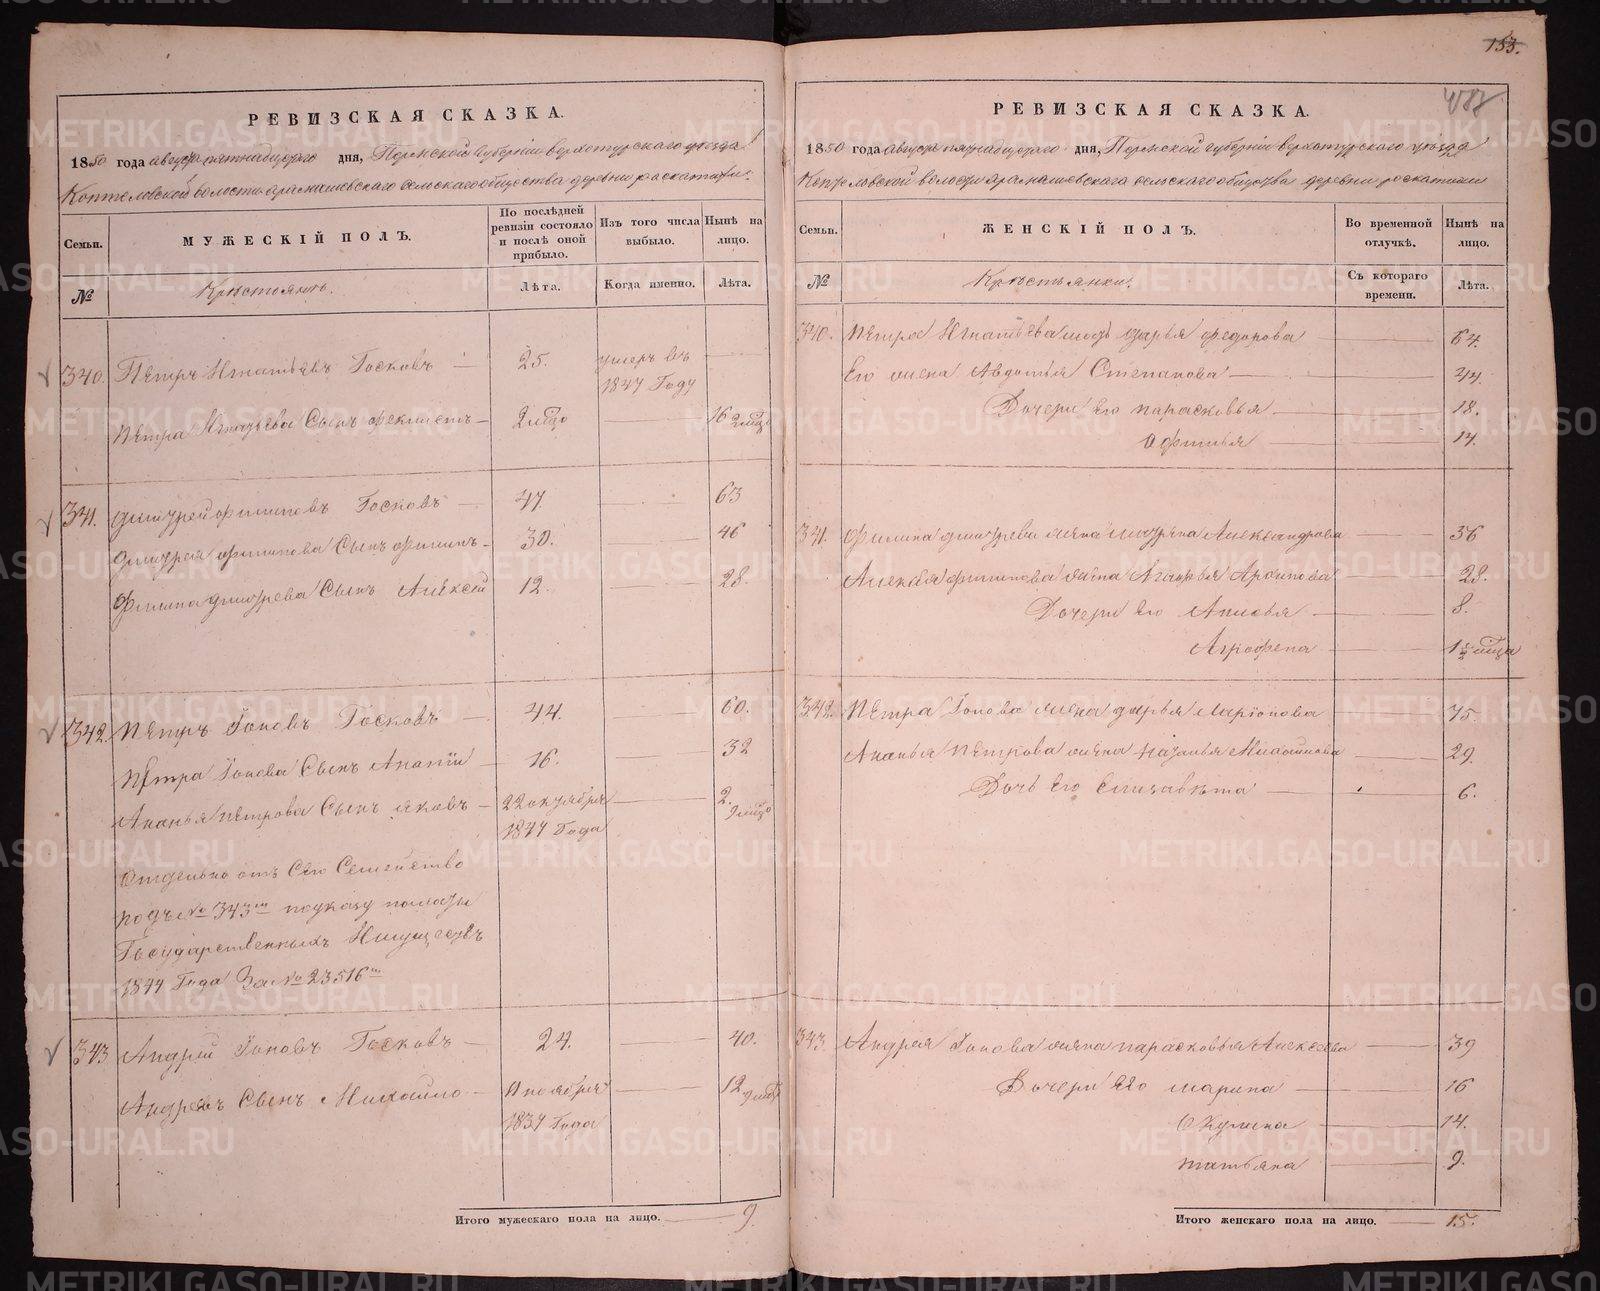 153.
РЕВИЗСКАЯ СКАЗКА.
1850 года августа пятнадцатого дня, Пермской губернiи верхотурского уѣзда
Коптеловской волости арамашевскаго сельскаго общества деревни раскатихи.
Семьи.
МУЖЕСКIЙ ПОЛЪ.
По послѣдней ревизiи состояло и послѣ оной прибыло.
Изъ того числа выбыло.
Нынѣ на лицо.
№
Крестьянъ.
Лѣта.
Когда именно.
Лѣта.
340. Пѣтръ Игнатьевъ Госковъ 25. умеръ въ 1847 Году
Пѣтра Игнатьева Сынъ феклистъ 2 мѣсо 16 2 мѣсо
341. Дмитрей филиповъ Госковъ 47. 63
Дмитрея филипова Сынъ филипъ 30. 46
Филипа дмитрева Сынъ Алѣксей 12. 28.
342. Пѣтръ Iоновъ Госковъ 44. 60.
Пѣтра Iонова Сынъ Ананiй 16. 32
Ананья пѣтрова Сынъ яковъ 22 октября 1847 Года 2. 9 мѣсо
Отдельно отъ Сего Семейство
подъ № 343мъ по указу полаты
Государственныхъ Имуществъ
1844 Года За № 23516мъ
343 Андрей Iоновъ Госковъ 24. 40.
Андреевъ Сынъ Михайло ноября 1837 Года 12 9 мѣсо
Итого мужескаго пола на лицо. 9.
РЕВИЗСКАЯ СКАЗКА.
1850 года августа пятнадцатого дня, Пермской губернiи верхотурского уѣзда
Коптеловской волости Арамашевскаго сельскаго общества деревни роскатихи
Семьи.
ЖЕНСКIЙ ПОЛЪ.
Во временной отлучкѣ.
Нынѣ на лицо.
№
Крѣстьянки.
Съ котораго времени.
Лѣта.
340. Пѣтра Игнатьева мать дарья федорова 64.
Его жена Авдотья Степанова 44.
Дочери Его парасковья 18.
Офимья 14.
341. Филипа дмитрева жена Александрова 36
Алексѣя филипова жена Агафья Архипова 28.
Дочери Его 8.
Аграфена 1 мѣсца
342. Пѣтра Iонова жена дарья Ларiонова 45.
Ананья пѣтрова жена наталья 29.
Дочь Его Елизавѣта 6.
343. Андрея Iонова жена парасковья Алексеева 39
Дочери Его марина 16
Окулина 14.
татьяна 9.
Итого женскаго пола на лицо. 15.
METRIKI.GASO-URAL.RU